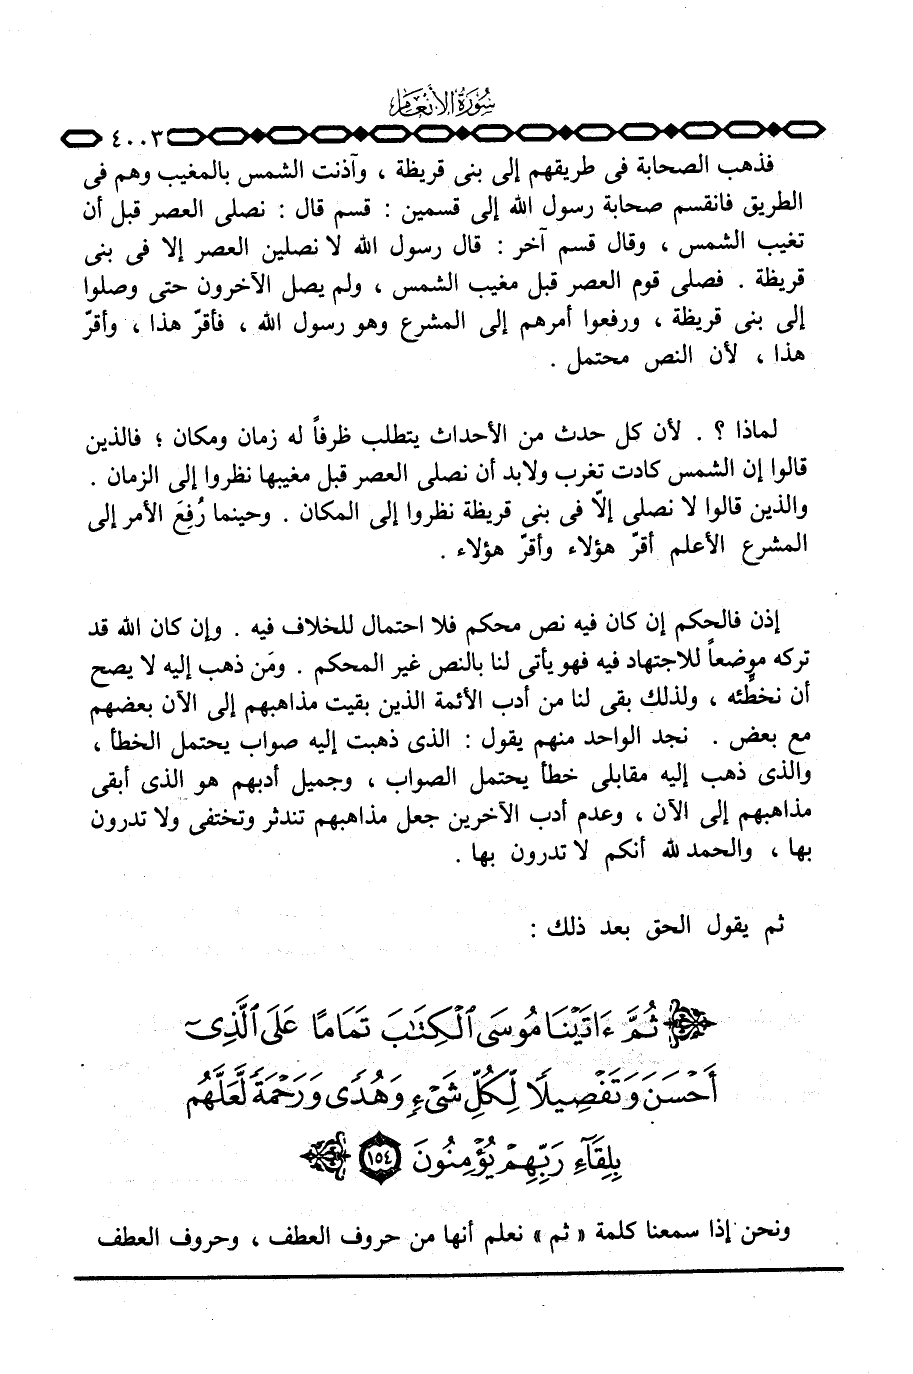 سُورَةُ الأَنْعَامِ
٤٠٠٣
فذهب الصحابة فى طريقهم إلى بنى قريظة ، وآذنت الشمس بالمغيب وهم فى
الطريق فانقسم صحابة رسول الله إلى قسمين : قسم قال : نصلى العصر قبل أن
تغيب الشمس ، وقال قسم آخر : قال رسول الله لا نصلين العصر إلا فى بنى
قريظة . فصلى قوم العصر قبل مغيب الشمس ، ولم يصل الآخرون حتى وصلوا
إلى بنى قريظة ، ورفعوا أمرهم إلى المشرع وهو رسول الله ، فأقرّ هذا ، وأقرّ
هذا ، لأن النص محتمل .
لماذا ؟ . لأن كل حدث من الأحداث يتطلب ظرفاً له زمان ومكان ؛ فالذين
قالوا إن الشمس كادت تغرب ولابد أن نصلى العصر قبل مغيبها نظروا إلى الزمان .
والذين قالوا لا نصلى إلاّ فى بنى قريظة نظروا إلى المكان . وحينما رُفِعَ الأمر إلى
المشرع الأعلم أقرّ هؤلاء وأقرّ هؤلاء .
إذن فالحكم إن كان فيه نص محكم فلا احتمال للخلاف فيه . وإن كان الله قد
تركه موضعاً للاجتهاد فيه فهو يأتى لنا بالنص غير المحكم . ومَن ذهب إليه لا يصح
أن نخطِّئه ، ولذلك بقى لنا من أدب الأئمة الذين بقيت مذاهبهم إلى الآن بعضهم
مع بعض . نجد الواحد منهم يقول : الذى ذهبت إليه صواب يحتمل الخطأ ،
والذى ذهب إليه مقابلى خطأ يحتمل الصواب ، وجميل أدبهم هو الذى أبقى
مذاهبهم إلى الآن ، وعدم أدب الآخرين جعل مذاهبهم تندثر وتختفى ولا تدرون
بها ، والحمد لله أنكم لا تدرون بها .
ثم يقول الحق بعد ذلك :
ثُمَّ ءَاتَيْنَا مُوسَى ٱلْكِتَٰبَ تَمَامًا عَلَى ٱلَّذِىٓ
أَحْسَنَ وَتَفْصِيلًا لِّكُلِّ شَىْءٍ وَهُدًى وَرَحْمَةً لَّعَلَّهُم
بِلِقَآءِ رَبِّهِمْ يُؤْمِنُونَ ١٥٤
ونحن إذا سمعنا كلمة « ثم » نعلم أنها من حروف العطف ، وحروف العطف